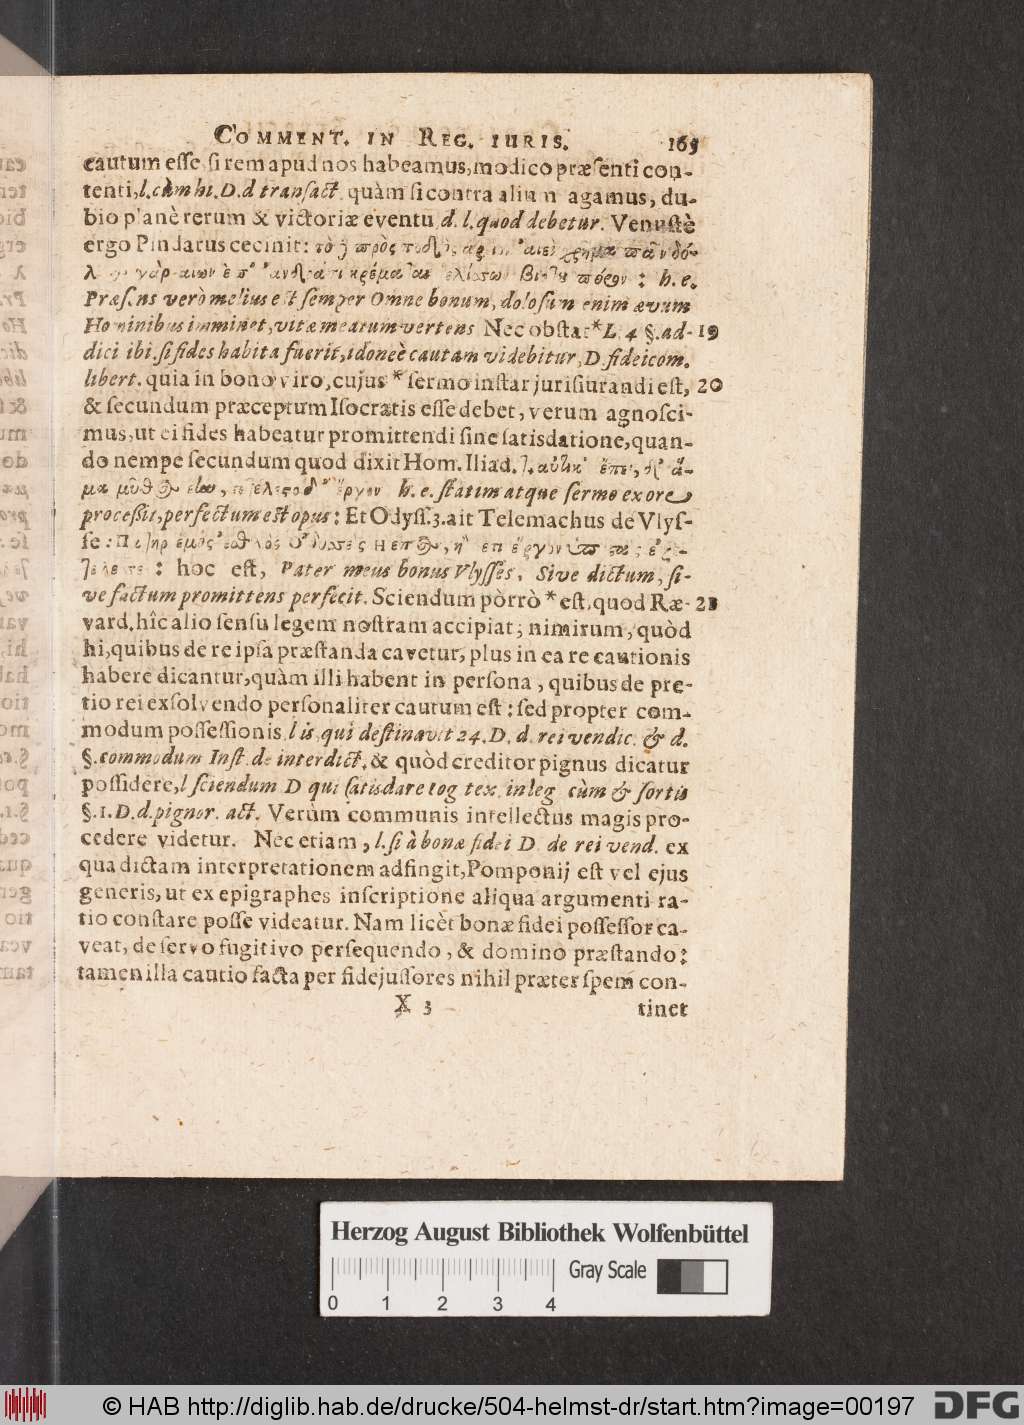 COMMENT. IN REG. IURIS. 165
cautum esse, si rem apud nos habeamus, modico præsenti con-
tenti, l. cùm hi. D. d transact. quàm si contra aliu n agamus, du-
bio planè rerum & victoriæ eventu d. l. quod debetur. Venustè
ergo Pindarus cecinit: τὸ πρὸς αἰεὶ χρῆμα πᾶν δό-
γὰρ αἰων κρέμαται βίου πόρον : h. e.
Præsens verò melius est semper Omne bonum, dolosun enim ævum
Hominibus imminet, vitæ meatum vertens Nec obstat * L. 4 §. ad- 19
dici ibi. si fides habita fuerit, idoneè cautam videbitur, D. fideicom.
libert. quia in bono viro, cujus * sermo instar jurisiurandi est, 20
& secundum præceptum Isocratis esse debet, verum agnosci-
mus, ut ei fides habeatur promittendi sine satisdatione, quan-
do nempe secundum quod dixit Hom. Iliad. αὐτίκ' ἔπει, ἅ-
μα μῦθος ἔργον h. e. statim atque sermo ex ore
processit, perfectum est opus: Et Odyss. 3. ait Telemachus de Vlys-
se : ἐμὸς ἐσθλὸς ἔργον
: hoc est, Pater meus bonus Vlysses, Sive dictum, si-
ve factum promittens perfecit. Sciendum pòrrò * est, quod Ræ- 21
vard. hîc alio sensu legem nostram accipiat; nimirum, quòd
hi, quibus de re ipsa præstanda cavetur, plus in ea re cautionis
habere dicantur, quàm illi habent in persona, quibus de pre-
tio rei exsolvendo personaliter cautum est: sed propter com-
modum possessionis l is, qui destinavit 24. D. d. rei vendic. & d.
§. commodum Inst. de interdict. & quòd creditor pignus dicatur
possidere, l sciendum D qui satisdare cog tex. in leg cùm & sortis
§. 1. D. d. pignor. act. Verùm communis intellectus magis pro-
cedere videtur. Nec etiam, l. si à bonæ fidei D. de rei vend. ex
qua dictam interpretationem adfingit, Pomponij est vel ejus
generis, ut ex epigraphes inscriptione aliqua argumenti ra-
tio constare posse videatur. Nam licèt bonæ fidei possessor ca-
veat, de servo fugitivo persequendo, & domino præstando:
tamen illa cautio facta per fidejussores nihil præter spem con-
X 3 tinet
Herzog August Bibliothek Wolfenbüttel
Gray Scale
0 1 2 3 4
© HAB http://diglib.hab.de/drucke/504-helmst-dr/start.htm?image=00197 DFG